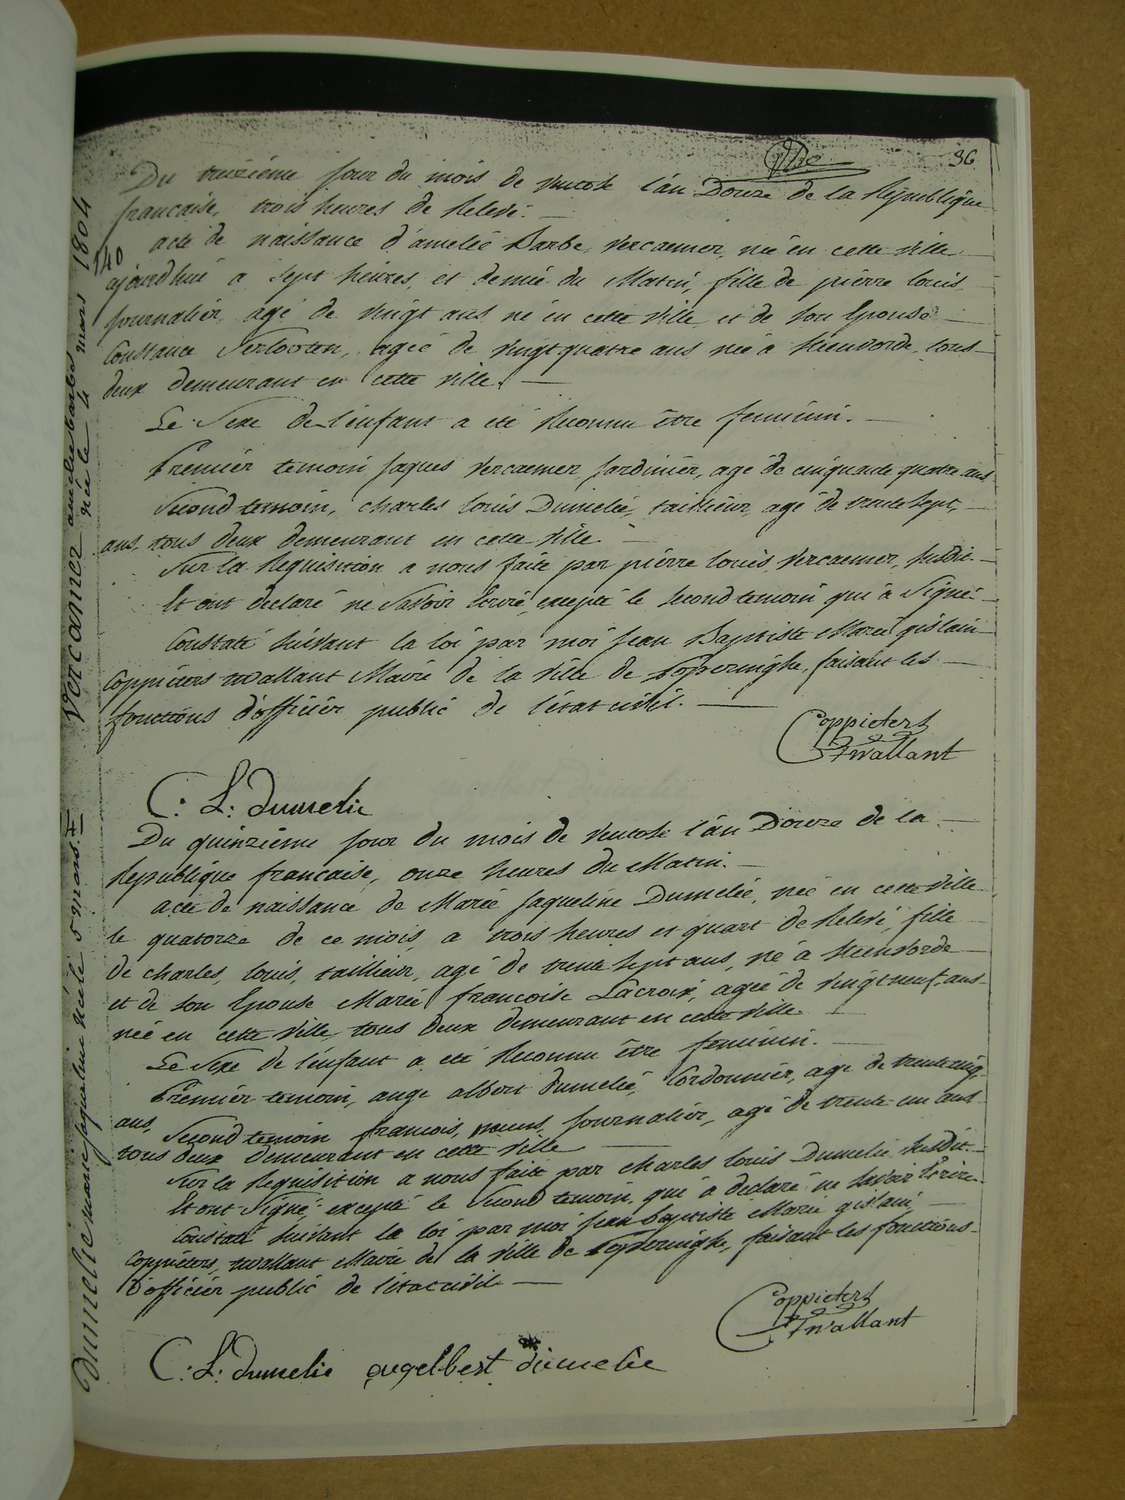 36
Du treizième jour du mois de ventose l'an Douze de la République
française, trois heures de Relevé.
140
acte de naissance d'amelie Barbe Vercaemer, née en cette ville
ajourdhui a sept heures, et demie du Matin, fille de pierre louis
journalier agé de vingt ans né en cette ville et de son Epouse
Constance agée de vingt quatre ans née a Steenvorde, tous
deux demeurant en cette ville.
Le Sexe de l'enfant a été Reconnu être feminin.
Premier temoin jaques Vercaemer jardinier, agé de cinquante quatre ans
Second temoin, charles louis Dumelié, taillieur, agé de trente sept,
ans, tous deux demeurant en cette ville.
Sur la Requisition a nous faite par pierre louis Vercaemer, susdit
Et ont declaré ne Savoir Ecrire, excepté le second temoin qui a Signé
Constaté suivant la loi par moi jean Baptiste Marie gislain
Coppieters wallant Maire de la Ville de Poperinghe, faisant les
fonctions d'officier public de l'état civil.
Coppieters
Twallant
C: L: dumelie
Du quinzième jour du mois de ventose l'an Douze de la
Republique francaise, onze heures du Matin.
acte de naissance de Marie Jaqueline Dumelié, née en cette ville
le quatorze de ce mois, a trois heures et quart de Relevé, fille
de charles, louis, taillieur, agé de trente sept ans, né à Steenvorde
et de son Epouse Marie francoise Lacroix, agée de vingt neuf ans
née en cette ville, tous deux demeurant en cette ville.
Le Sexe de l'enfant a été Reconnu être feminin.
Premier temoin, ange albert dumelié, Cordonnier, agé de trente cinq
ans,
Second temoin francois, journalier, agé de trente un ans
tous deux demeurant en cette ville
Sur la Requisition a nous faite par charles louis Dumelie susdit.
Et ont Signé excepté le Second temoin, qui a declaré ne savoir Ecrire
Constaté suivant la loi par moi jean baptiste Marie gislain
Coppieters, wallant Maire de la Ville de Poperinghe, faisant les fonctions
D'officier public de l'état civil
Coppieters
Twallant
C: L: dumelie angelbert dumelie
Vercamer amelie barbe
née le 4 mars 1804
Dumelie marie jaqueline née le 5 mars. X